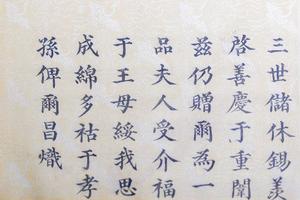 三世儲休錫羨
啓善慶于重闈
茲仍贈爾為一
品夫人受介福
于王母綏我思
成綿多祜于孝
孫俾爾昌熾